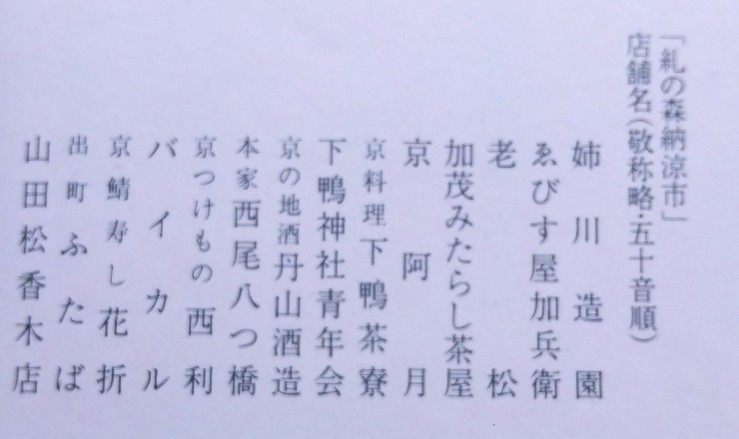 「糺の森納涼市」
店舗名（敬称略・五十音順）
姉川造園
ゑびす屋加兵衛
老松
加茂みたらし茶屋
京阿月
京料理下鴨茶寮
下鴨神社青年会
京の地酒丹山酒造
本家西尾八つ橋
京つけもの西利
バイカル
京鯖寿し花折
出町ふたば
山田松香木店